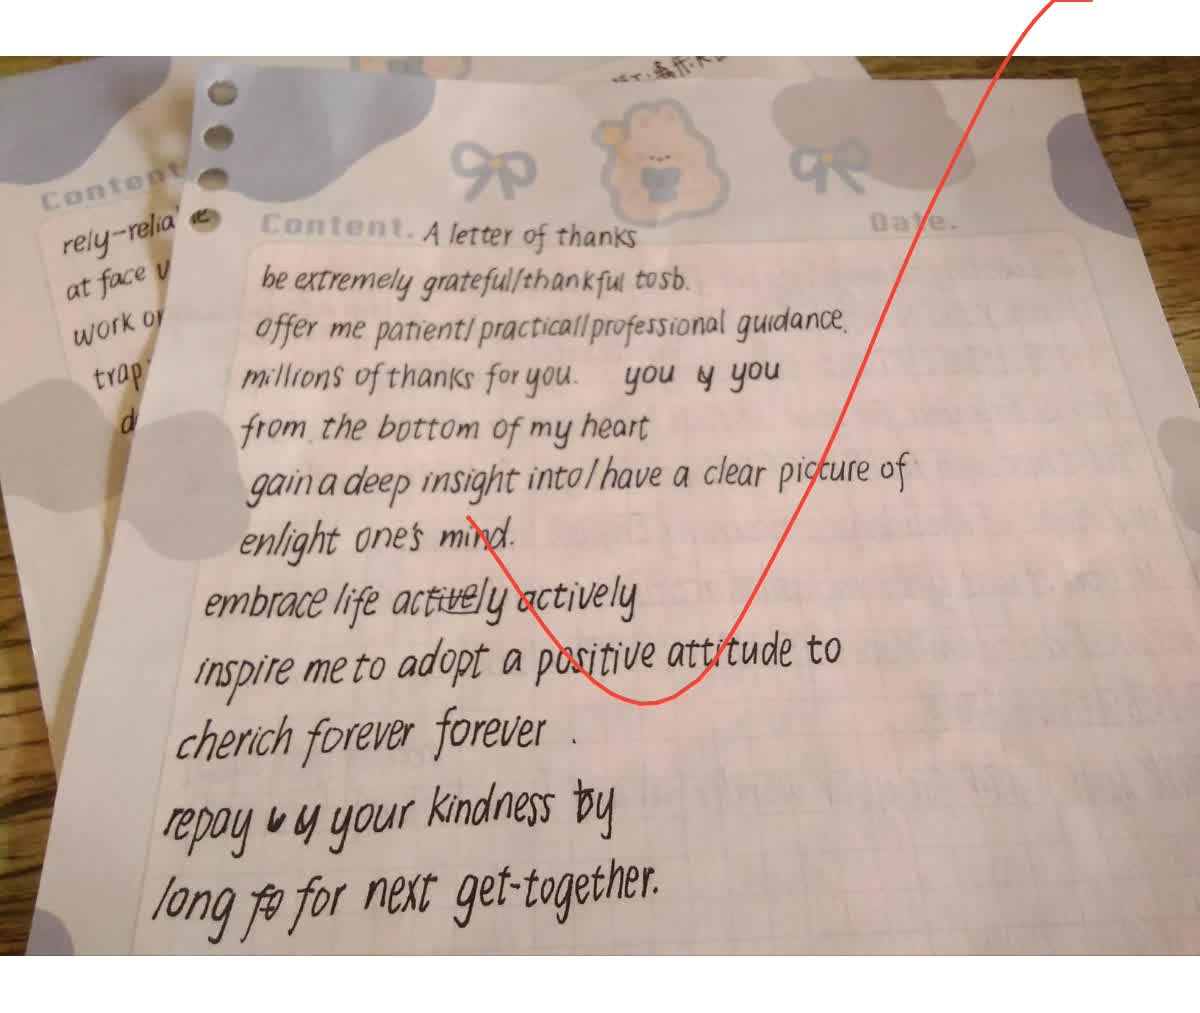 Content
rely-relia
at face v
work or
trap
d
Content. A letter of thanks
Date.
be extremely grateful/thankful to sb.
offer me patient/practical/professional guidance.
millions of thanks for you. you y you
from the bottom of my heart
gain a deep insight into/have a clear picture of
enlight one's mind.
embrace life actively actively
inspire me to adopt a positive attitude to
cherich forever forever .
repay y your kindness by
long fo for next get-together.